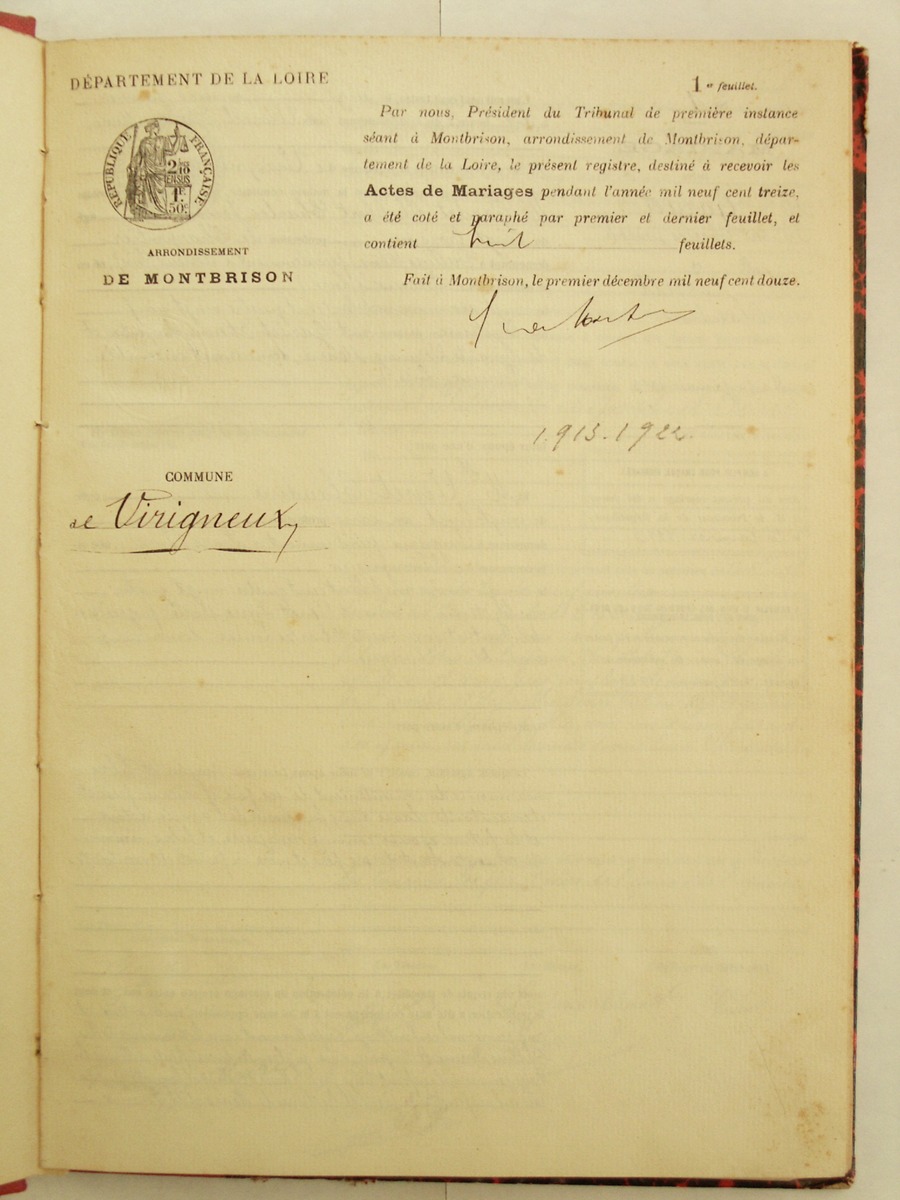 DÉPARTEMENT DE LA LOIRE
1er feuillet.
RÉPUBLIQUE FRANÇAISE
2/10 EN SUS
1F 50c
ARRONDISSEMENT
DE MONTBRISON
Par nous, Président du Tribunal de première instance
séant à Montbrison, arrondissement de Montbrison, dépar-
tement de la Loire, le présent registre, destiné à recevoir les
Actes de Mariages pendant l'année mil neuf cent treize,
a été coté et paraphé par premier et dernier feuillet, et
contient huit feuillets.
Fait à Montbrison, le premier décembre mil neuf cent douze.
1913-1922
COMMUNE
de Virigneux